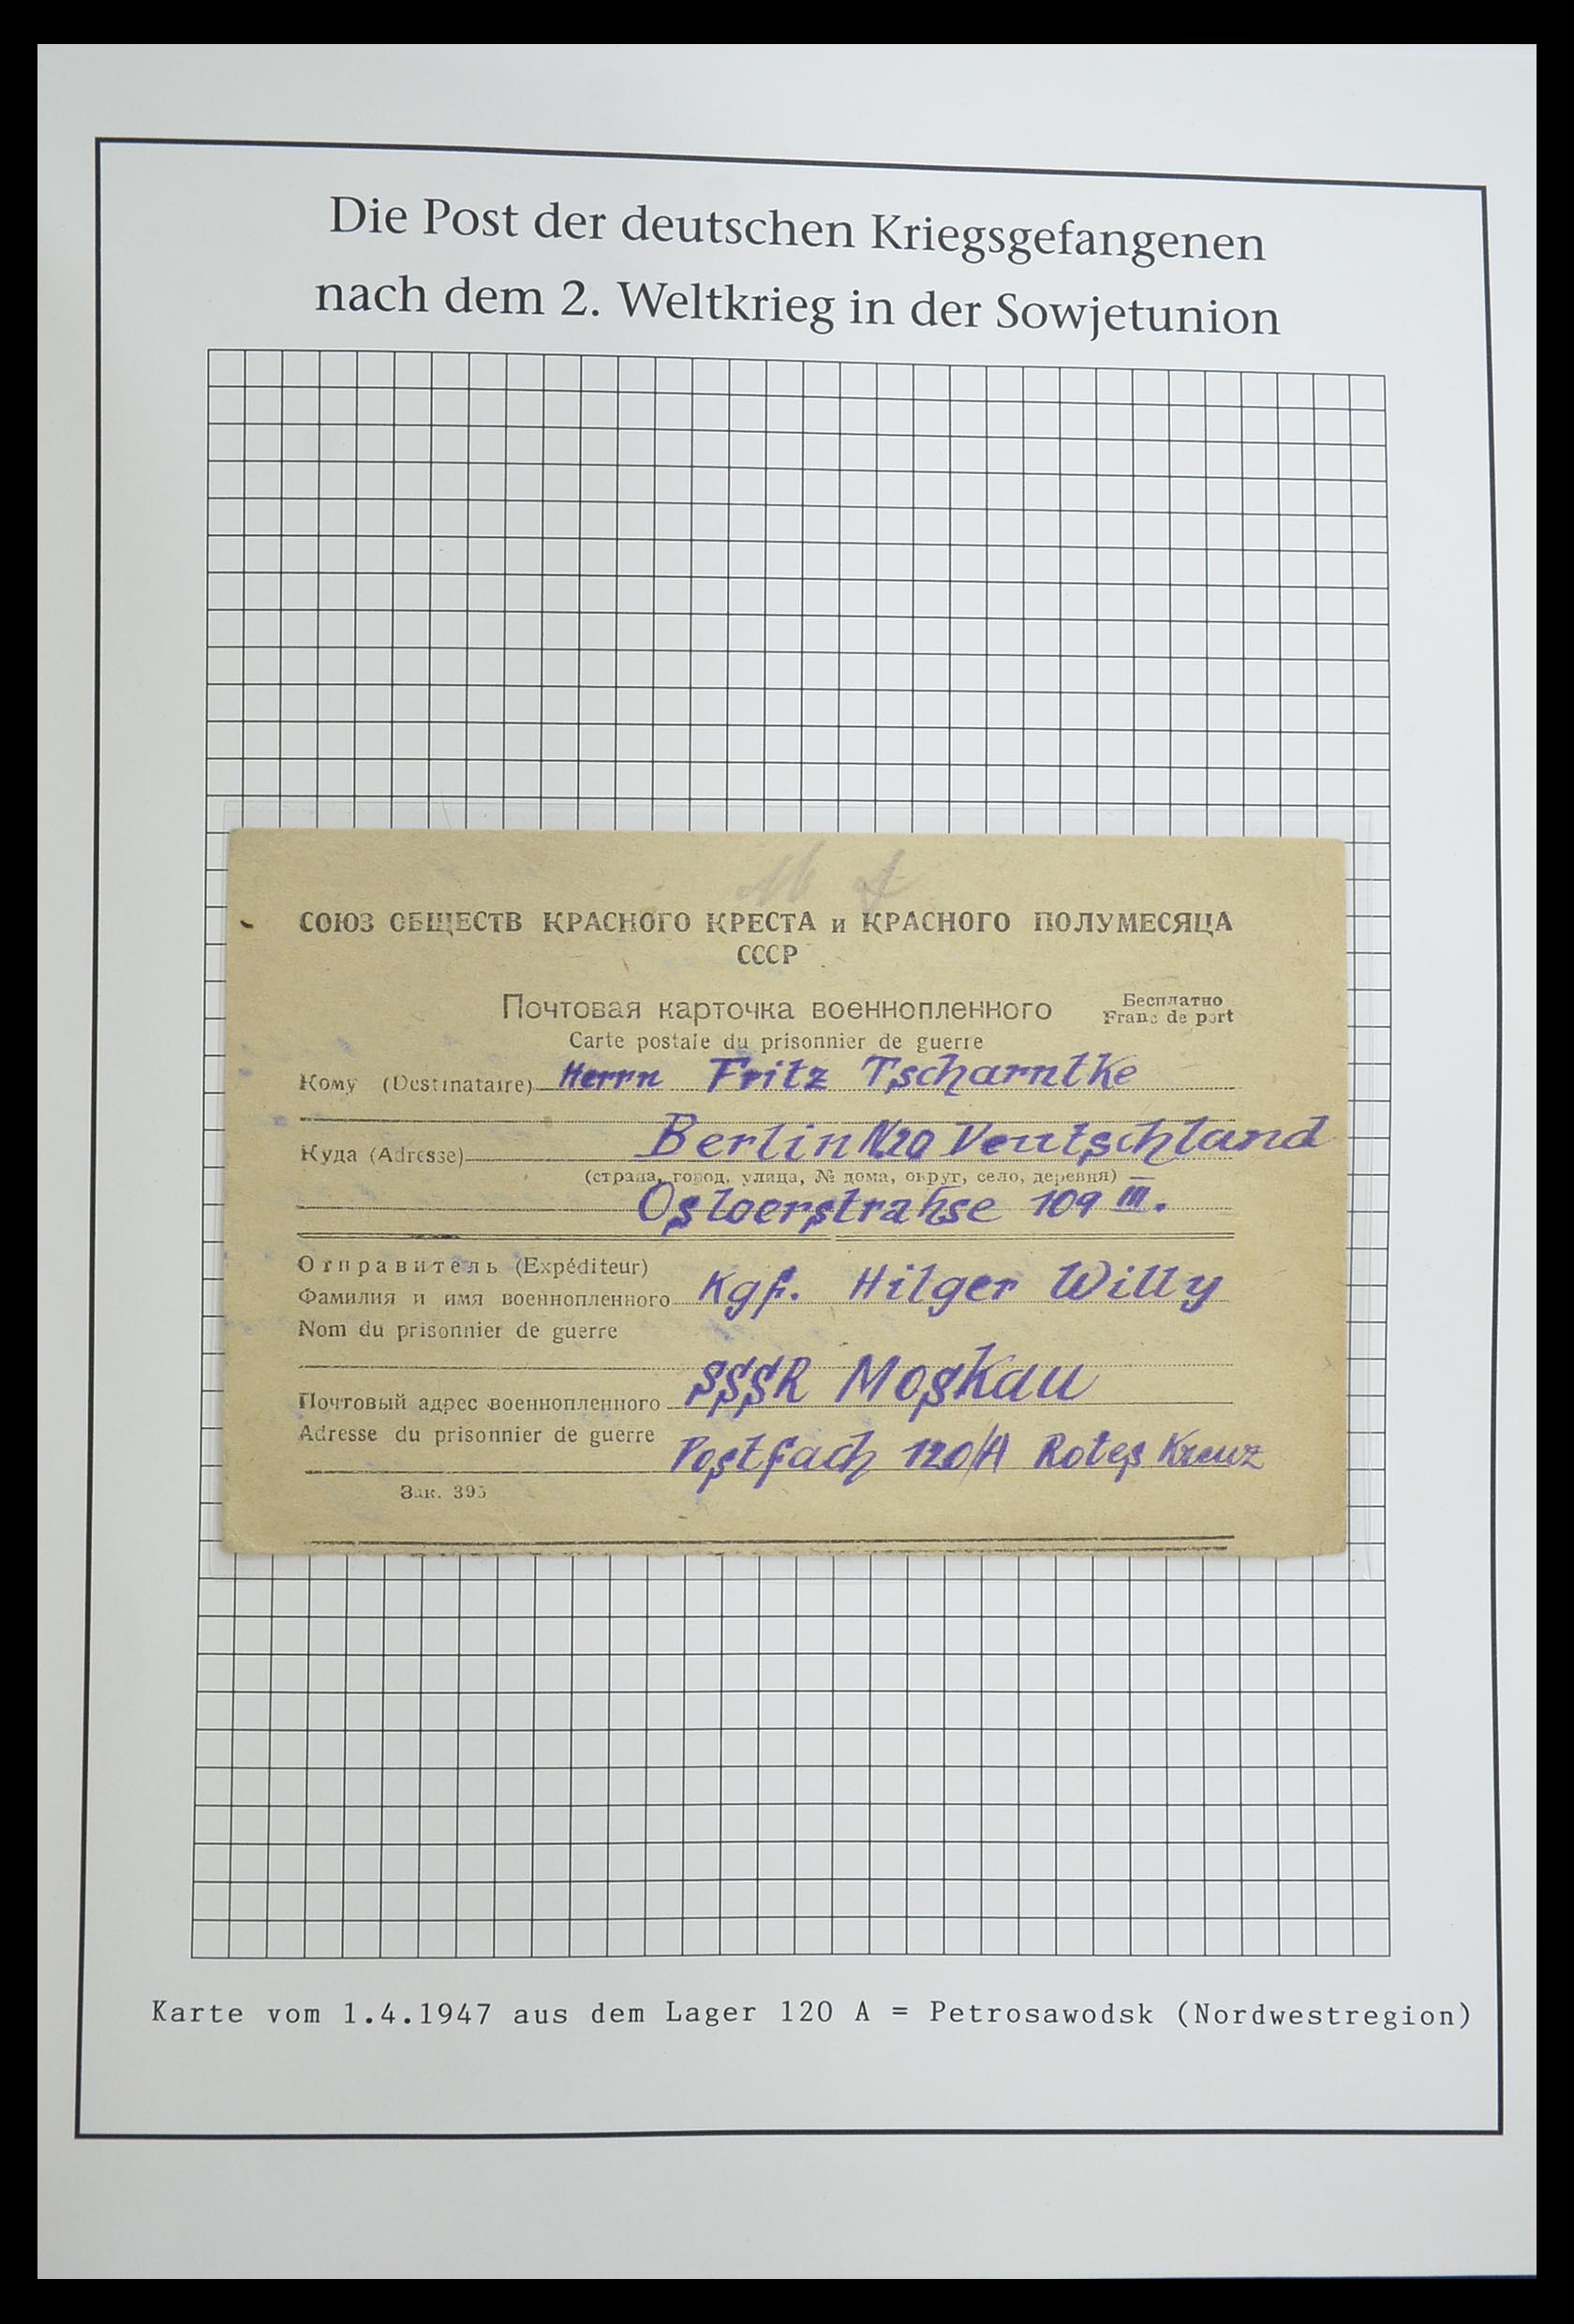 Die Post der deutschen Kriegsgefangenen
nach dem 2. Weltkrieg in der Sowjetunion
СОЮЗ ОБЩЕСТВ КРАСНОГО КРЕСТА и КРАСНОГО ПОЛУМЕСЯЦА
СССР
Почтовая карточка военнопленного
Бесплатно
Franc de port
Carte postale du prisonnier de guerre
Кому (Destinataire) Herrn Fritz Tscharntke
Куда (Adresse) Berlin N.20 Deutschland
(страна, город, улица, № дома, округ, село, деревня)
Osloerstraße 109 III.
Отправитель (Expéditeur)
Фамилия и имя военнопленного Kgf. Hilger Willy
Nom du prisonnier de guerre
Почтовый адрес военнопленного SSSR Moskau
Adresse du prisonnier de guerre Postfach 120/A Rotes Kreuz
Зак. 395
Karte vom 1.4.1947 aus dem Lager 120 A = Petrosawodsk (Nordwestregion)